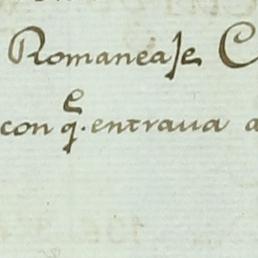 Romanease C
con q.e entraua a